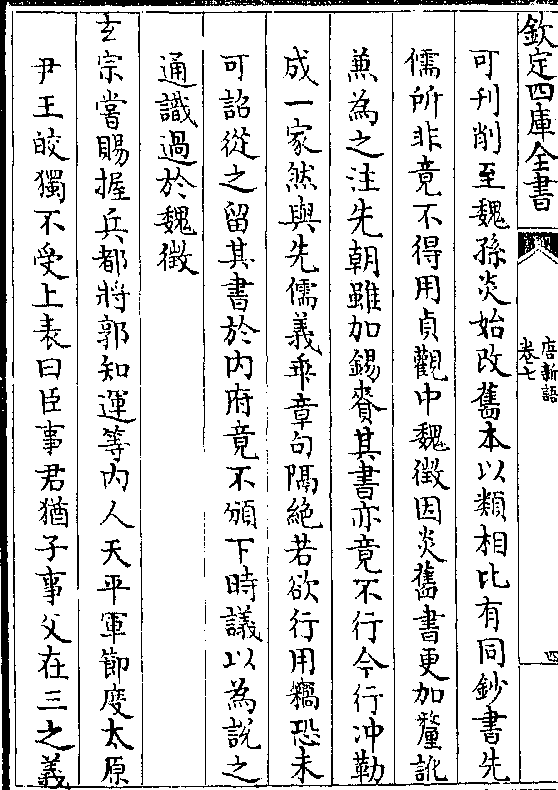 欽定四庫全書
唐新語
卷七
四
可刊削至魏孫炎始改舊本以類相比有同鈔書先
儒所非竟不得用貞觀中魏徵因炎舊書更加釐訛
兼為之注先朝雖加錫賚其書亦竟不行今行冲勒
成一家然與先儒義乖章句隔絶若欲行用竊恐未
可詔從之留其書於内府竟不頒下時議以為説之
通識過於魏徵
玄宗嘗賜握兵都將郭知運等内人天平軍節度太原
尹王皎獨不受上表曰臣事君猶子事父在三之義